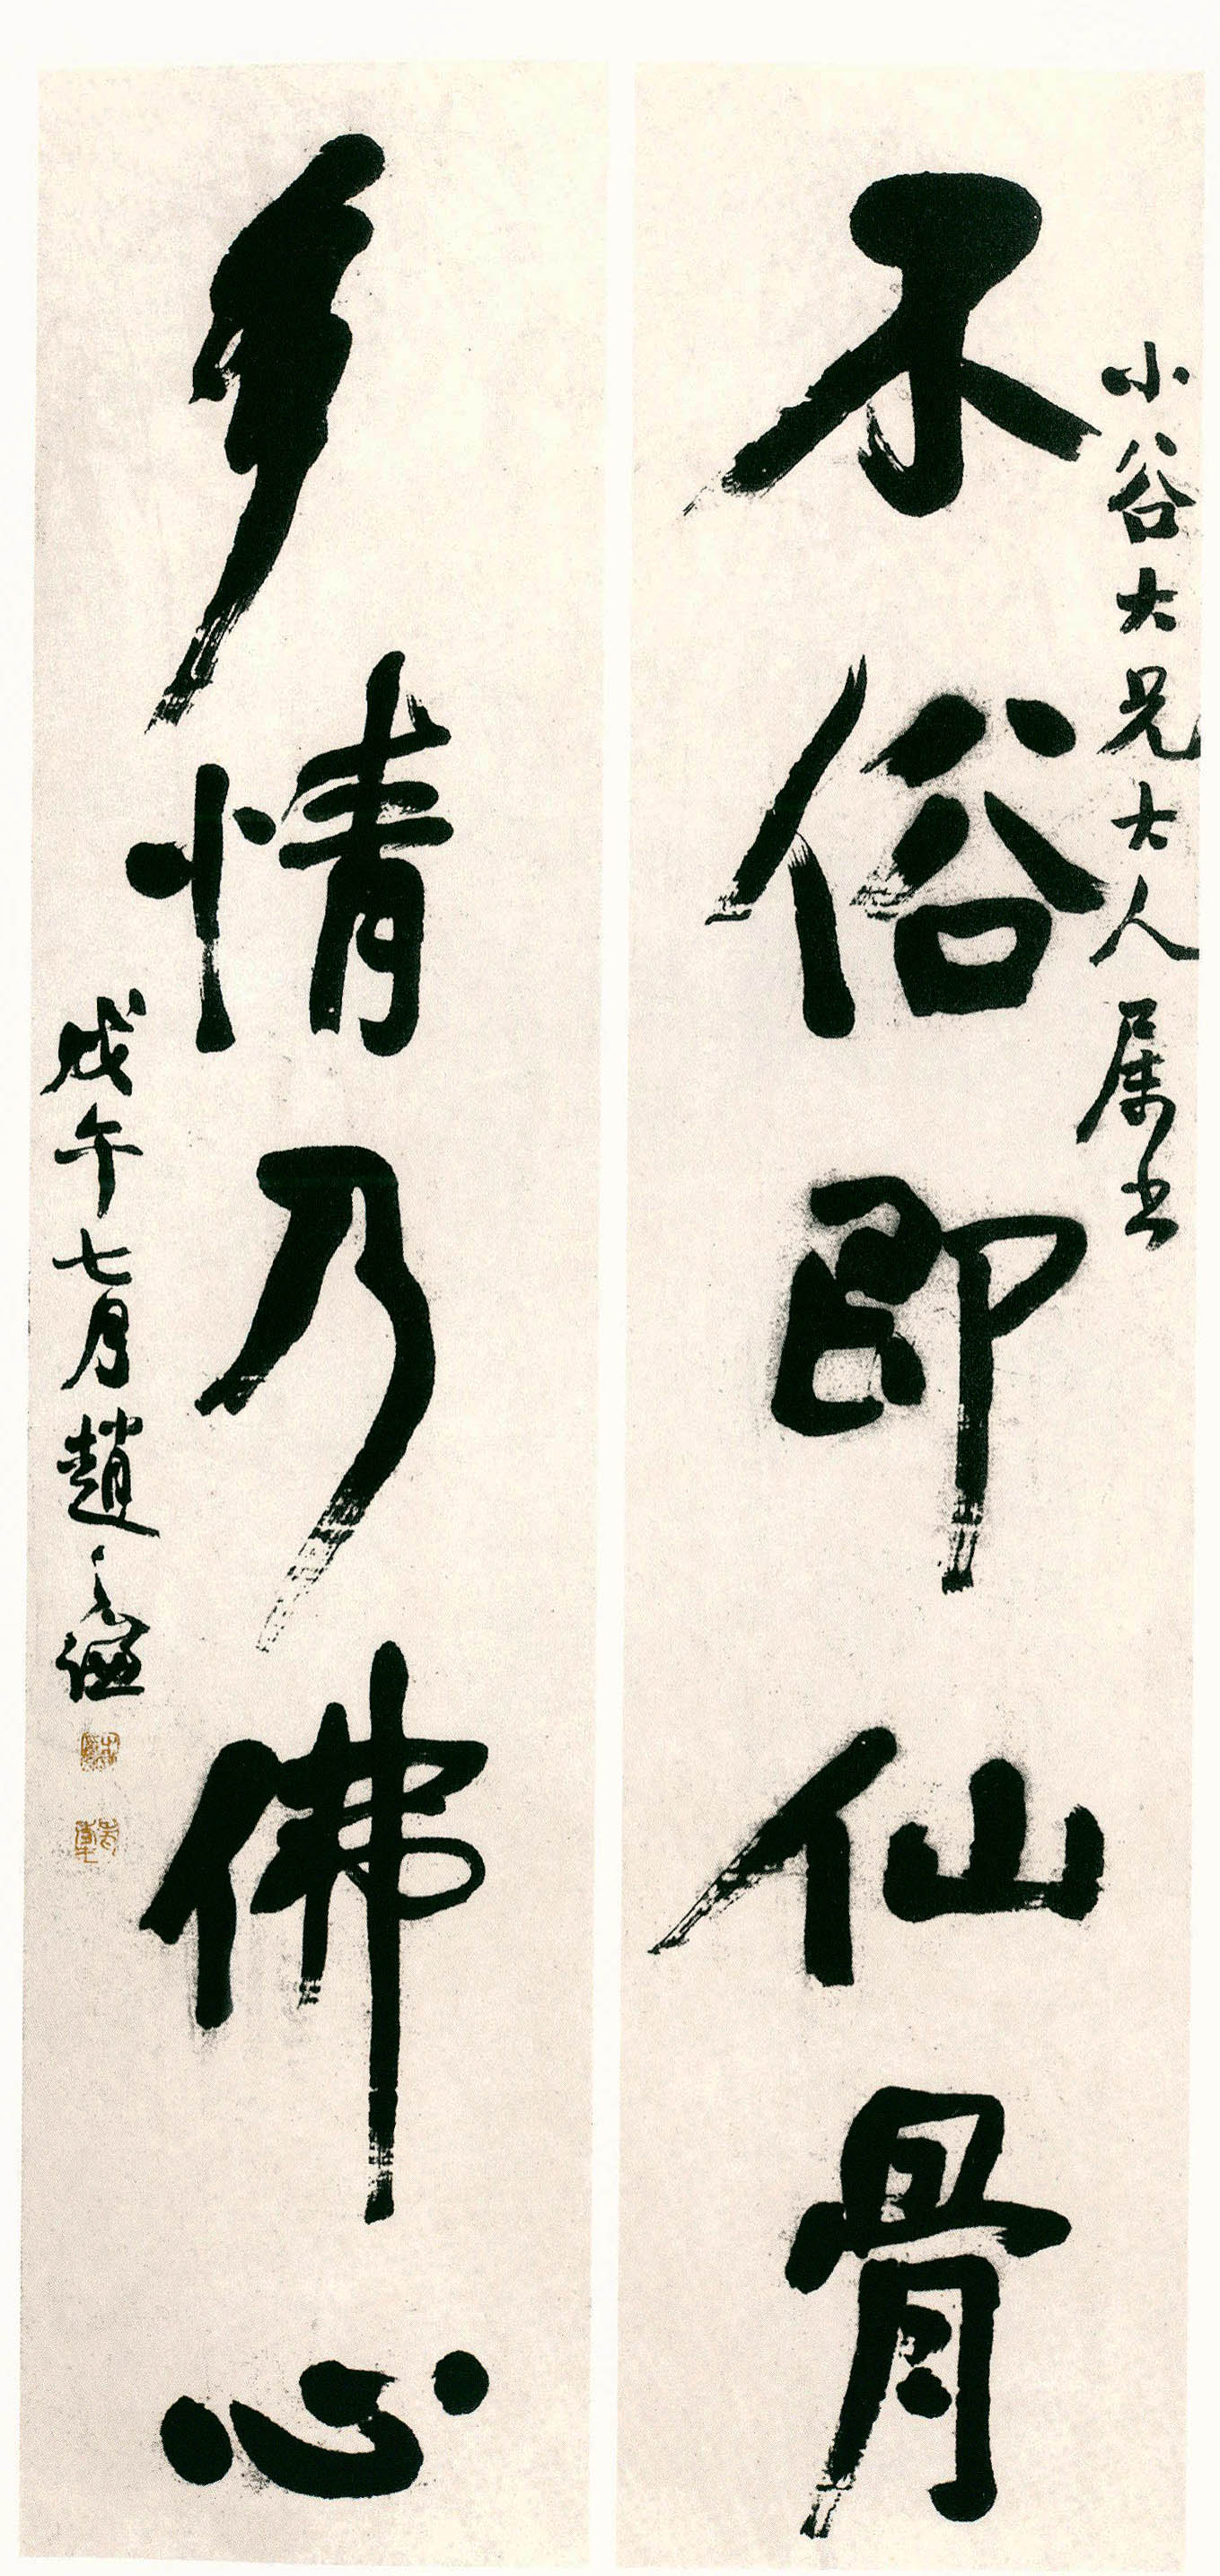 小谷大兄大人属书
不俗即仙骨
多情乃佛心
戊午七月趙之謙